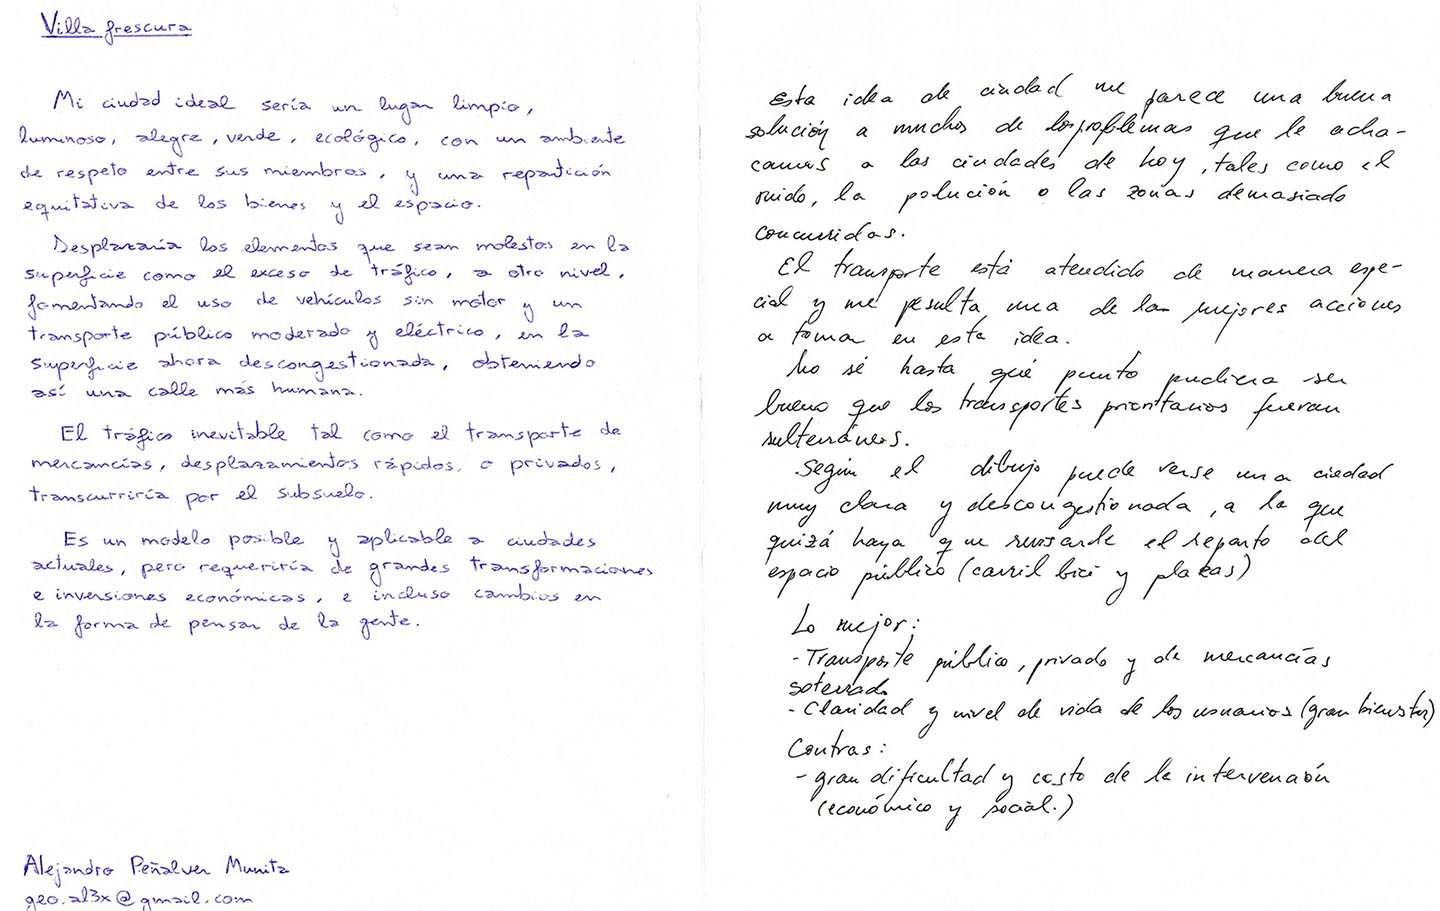 Villa frescura
Mi ciudad ideal sería un lugar limpio,
luminoso, alegre, verde, ecológico, con un ambiente
de respeto entre sus miembros, y una repartición
equitativa de los bienes y el espacio.
Desplazaría los elementos que sean molestos en la
superficie como el exceso de tráfico, a otro nivel,
fomentando el uso de vehículos sin motor y un
transporte público moderado y eléctrico, en la
superficie ahora descongestionada, obteniendo
así una calle más humana.
El tráfico inevitable tal como el transporte de
mercancías, desplazamientos rápidos, o privados,
transcurriría por el subsuelo.
Es un modelo posible y aplicable a ciudades
actuales, pero requeriría de grandes transformaciones
e inversiones económicas, e incluso cambios en
la forma de pensar de la gente.
Alejandro Peñalver Munita
geo.al3x@gmail.com
Esta idea de ciudad me parece una buena
solución a muchos de los problemas que le acha-
camos a las ciudades de hoy, tales como el
ruido, la polución o las zonas demasiado
concurridas.
El transporte está atendido de manera espe-
cial y me resulta una de las mejores acciones
a tomar en esta idea.
No sé hasta qué punto pudiera ser
bueno que los transportes prioritarios fueran
subterráneos.
Según el dibujo puede verse una ciudad
muy clara y descongestionada, a la que
quizá haya que revisarle el reparto del
espacio público (carril bici y plazas)
Lo mejor:
- Transporte público, privado y de mercancías
soterrado
- Claridad y nivel de vida de los usuarios (gran bienestar)
Contras:
- gran dificultad y costo de la intervención
(económico y social.)